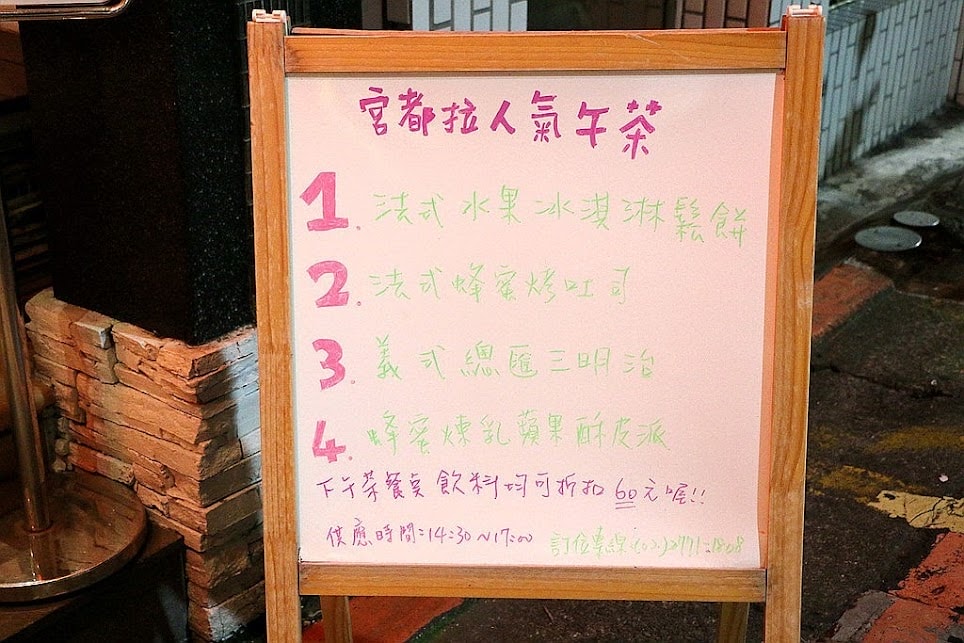 宮都拉人氣午茶
1. 法式水果冰淇淋鬆餅
2. 法式蜂蜜烤吐司
3. 義式總匯三明治
4. 蜂蜜煉乳蘋果酥皮派
下午茶餐桌飲料均可折扣60元喔!!
供應時間:14:30~17:00
訂位專線:(02)2771-1808